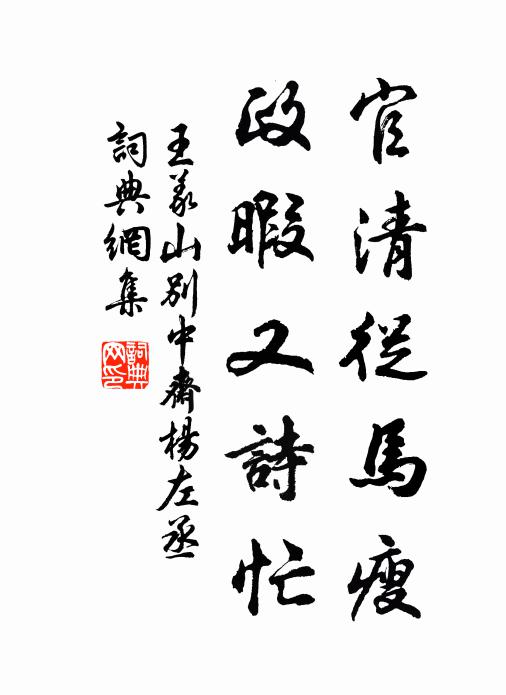 官清從馬瘦
政暇又詩忙
王義山別中齋楊左丞
詞典網集
詞典网印